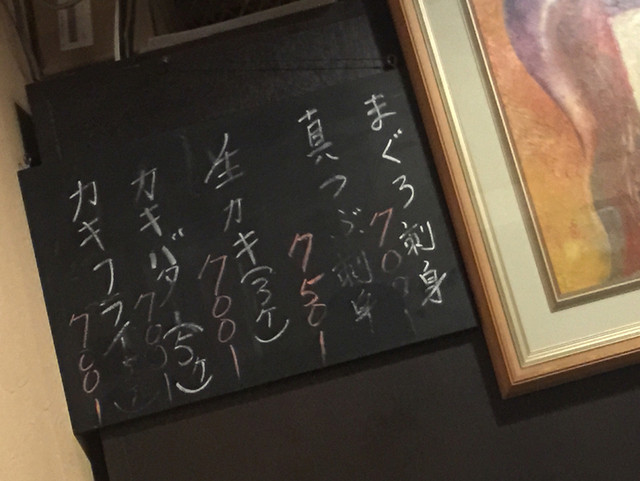 まぐろ刺身
700
真つぶ刺身
750
生カキ(3ケ)
700
カキバタ(5ケ)
700
カキフライ
700